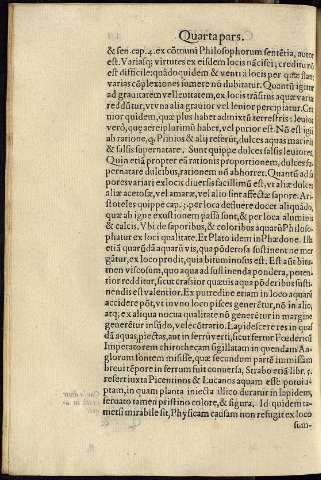 Quarta pars.
& sen. cap. 4. ex cõmuni Philosophorum sentẽtia, autor
est. Variasq; virtutes ex eisdem locis nãcisci, creditu nõ
est difficile: quãdoquidem & venti à locis per quæ flant,
varias cõplexiones sumere nõ dubitatur. Quantũ igitur
ad grauitatem vel leuitatem, ex locis trãsitus aquæ variæ
reddũtur, vt vna alia grauior vel leuior percipiatur.
uior quidem, quæ plus habet admixtũ terrestris: leuior
verò, quæ aereiplurimũ habet, vel purior est. Nõ est igit
ab ratione, q Plinius & alij referũt, dulces aquas marinis
& falsis supernatare. Sunt quippe dulces salsis leuiores.
Quia etiã propter eã rationis proportionem, dulces su-
pernatare dulcibus, rationem nõ abhorret. Quantũ ad sa
pores varij ex locis diuersis facillimũ est, vt aliæ dulces
aliæ acetosæ, vel amaræ, vel alio sint affectæ sapore. Ari-
stoteles quippe cap. ; per loca defluere docet aliquãdo,
quæ ab igne exustionem passa sunt, & per loca aluminis
& calcis. Vbi de saporibus, & coloribus aquarũ Philoso-
phatur ex loci qualitate. Et Plato idem in Phædone. Il-
etiã quarũdã aquarũ vis, quæ põderosa sustinet ne mer
gãtur, ex loco prodit, quia bituminosus est. Est aũt bitu-
men viscosum, quo aqua ad sustinenda pondera, poten-
tior redditur, sicut crassior quæuis aqua põderibus susti-
nendis est valentior. Ex putredine etiam in loco aquarũ
accidere põt, vt in vno loco pisces generẽtur, nõ in alio,
atq; ex aliqua nocua qualitate nõ generẽtur in margine
generẽtur in fũdo, vel ecõtrario. Lapidescere res in qua
dã aquas, piectas, aut in ferrũ verti, sicut fertur Fœdericũ
Imperatorem chirothecam sigillatam in quendam An-
glorum fontem misisse, quæ secundum partẽ immissam
breui tẽpore in ferrum suit conuersa, Strabo etiã libr. 5.
refert iuxta Picentinos & Lucanos aquam esse potui a-
ptam, in quam planta iniecta illico duratur in lapidem,
seruato tamen pristino colore, & figura. Id quidem ta-
metsi mirabile sit, Physicam causam non refugit ex loco
sum-